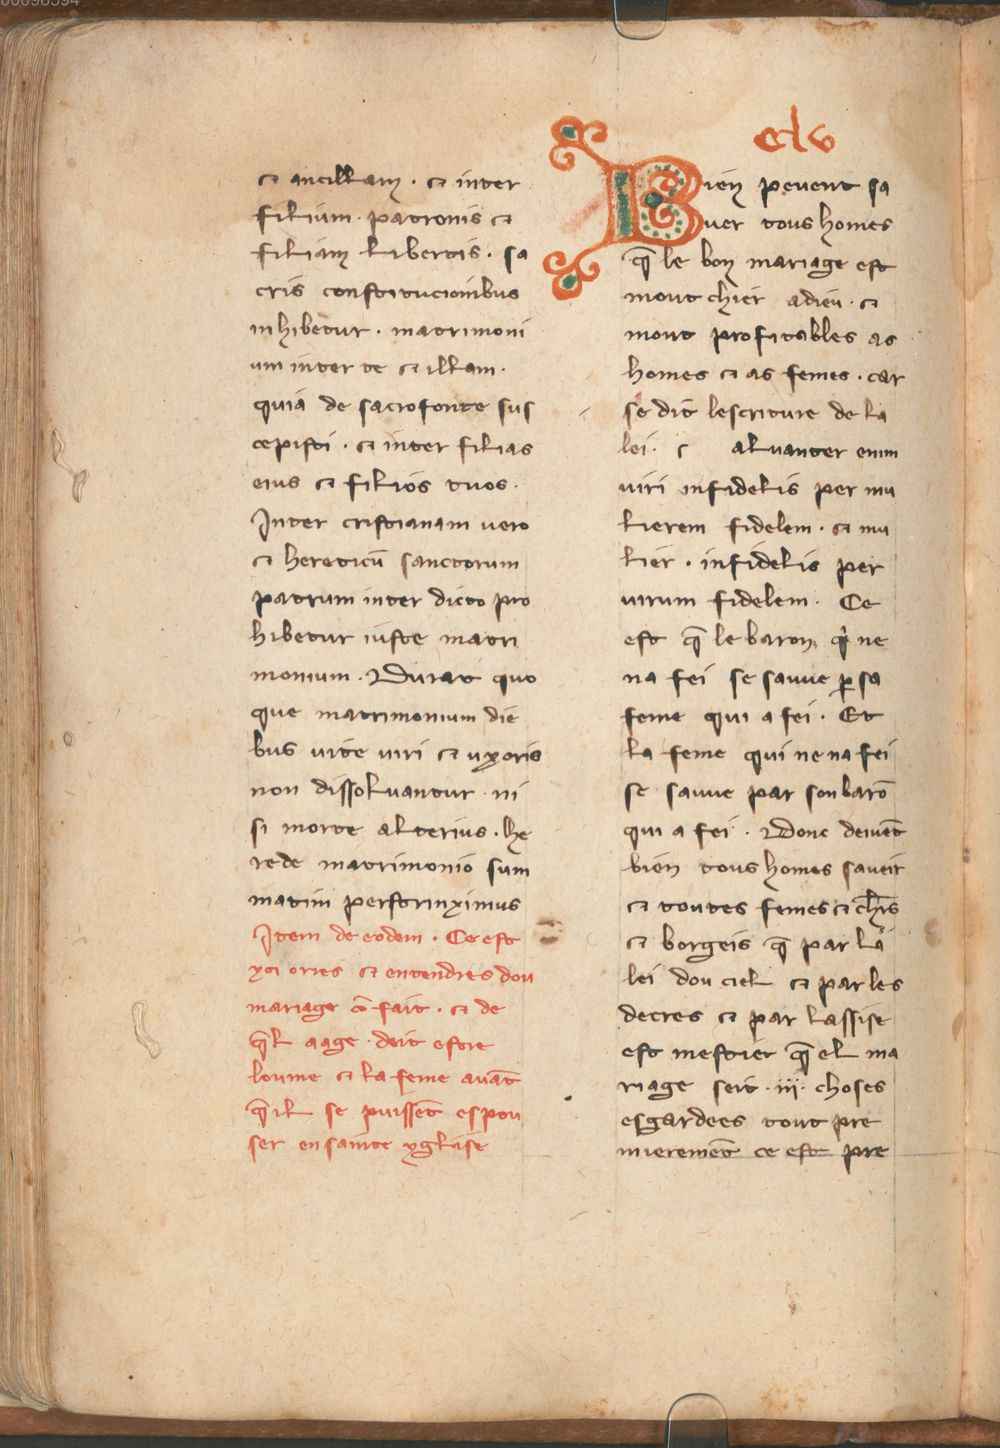 ⁊ ancillam · ⁊ inter
filium · patronis ⁊
filiam libertis · sa
cris constitucionibus
inhibetur · matrimoni
um inter te ⁊ illam ·
quia de sacrofonte sus
cepisti · ⁊ inter filias
eius ⁊ filios tuos ·
Inter cristianam vero
⁊ hereticū sanctorum
patrum inter dicto pro
hibetur iuste matri
monium · Durat quo
que matrimonium die
bus vite viri ⁊ uxoris
non dissoluantur · ni
si morte alterius · he
rede matrimonio sum
matim perstrinximus
Item de eodem · Ce est
yci ories ⁊ entendres dou
mariage cō fait · ⁊ de
q̄l aage · doit estre
loume ⁊ la feme auāt
q̄ il se puissēt espou
ser en sainte yglise
clv
Bien pevent sa
uer tous homes
q̄ le bon mariage est
mout chier adieu · ⁊
mout profitables as
homes ⁊ as femes · car
se dit lescriture de la
lei · s aluanter enim
viri infidelis per mu
lierem fidelem · ⁊ mu
lier · infidelis per
virum fidelem · Ce
est q̄ le baron qi ne
na fei se sauve ꝑ sa
feme qui a fei · Et
la feme qui ne na fei
se sauve par son barō
qui a fei · Donc deivēt
bien tous homes saveir
⁊ toutes femes ⁊ chl̄rs
⁊ borgeis q̄ par la
lei dou ciel ⁊ par les
decres ⁊ par lassise
est mestier q̄ el ma
riage seit · iij · choses
esgardees tout pre
mieremēt ce est pre